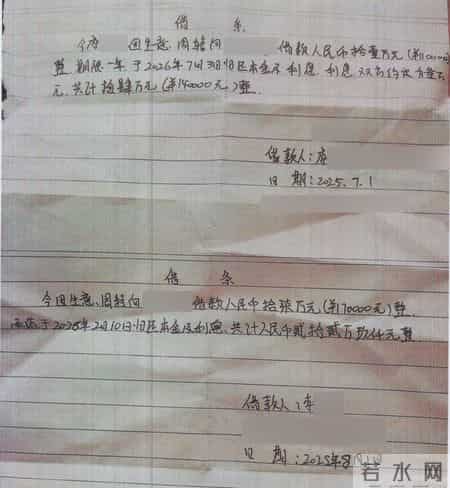 借 条
今 因生意周转向 借款人民币拾壹万元(第110000元)
整 期限一年 于2026年7月3日归还本金及利息 利息双方约定为叁万
元.共计拾肆万元(第140000元)整.
借款人:李
日 期:2025.7.1
借 条
今因生意周转向 借款人民币拾柒万元(第170000元)整.
于2026年2月10日归还本金及利息,共计人民币贰拾贰万 仟元整
借款人:李
日 期:2025年8
若水网